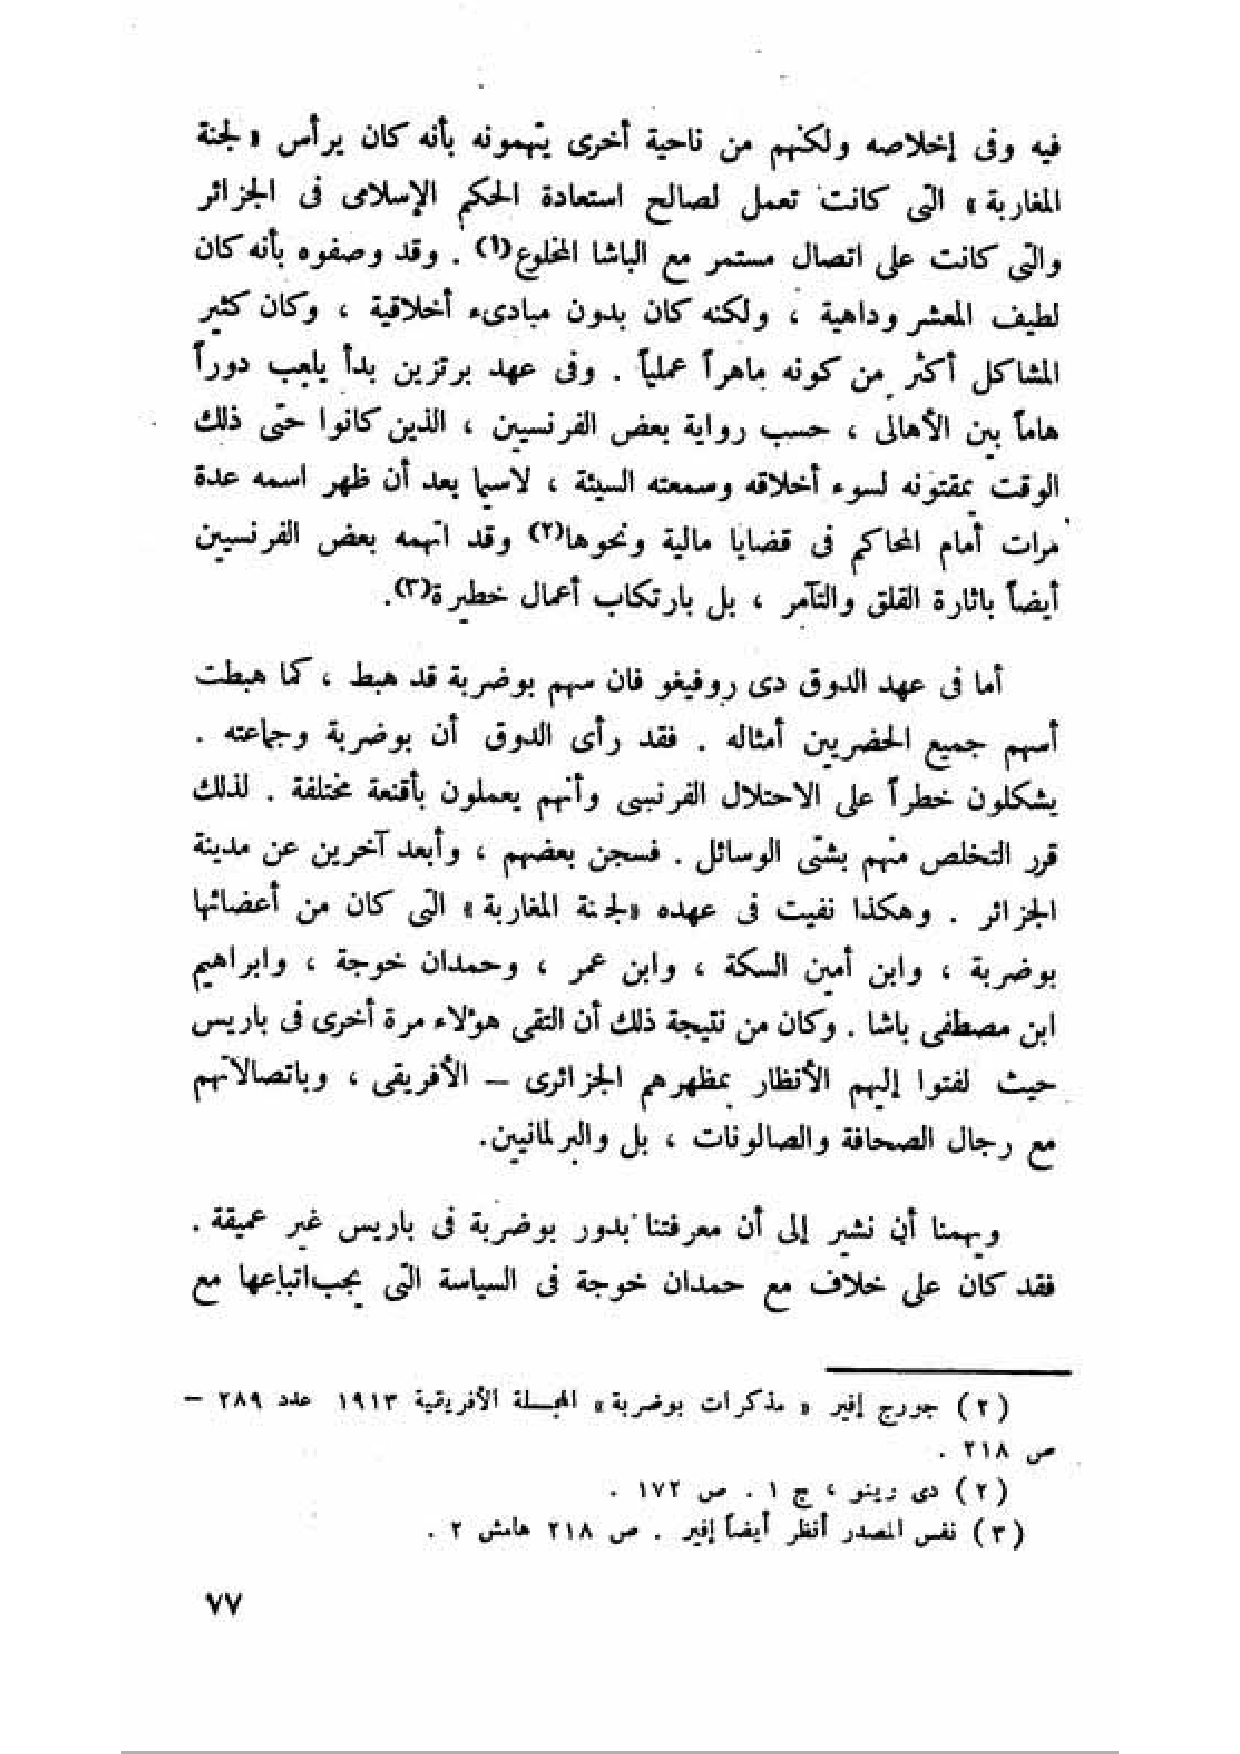 فيه وفى إخلاصه ولكنهم من ناحية أخرى يتهمونه بأنه كان يرأس «لجنة
المغاربة» التى كانت تعمل لصالح استعادة الحكم الإسلامى فى الجزائر
والتى كانت على اتصال مستمر مع الباشا المخلوع(١) . وقد وصفوه بأنه كان
لطيف المعشر وداهية ، ولكنه كان بدون مبادىء أخلاقية ، وكان كثير
المشاكل أكثر من كونه ماهراً عملياً . وفى عهد برتزين بدأ يلعب دوراً
هاماً بين الأهالى ، حسب رواية بعض الفرنسيين ، الذين كانوا حتى ذلك
الوقت يمقتونه لسوء أخلاقه وسمعته السيئة ، لاسيما بعد أن ظهر اسمه عدة
مرات أمام المحاكم فى قضايا مالية ونحوها(٢) وقد اتهمه بعض الفرنسيين
أيضاً باثارة القلق والتآمر ، بل بارتكاب أعمال خطيرة(٣).
أما فى عهد الدوق دى روفيغو فان سهم بوضربة قد هبط ، كما هبطت
أسهم جميع الحضريين أمثاله . فقد رأى الدوق أن بوضربة وجماعته .
يشكلون خطراً على الاحتلال الفرنسى وأنهم يعملون بأقنعة مختلفة . لذلك
قرر التخلص منهم بشتى الوسائل . فسجن بعضهم ، وأبعد آخرين عن مدينة
الجزائر . وهكذا نفيت فى عهده «لجنة المغاربة» التى كان من أعضائها
بوضربة ، وابن أمين السكة ، وابن عمر ، وحمدان خوجة ، وابراهيم
ابن مصطفى باشا . وكان من نتيجة ذلك أن التقى هؤلاء مرة أخرى فى باريس
حيث لفتوا إليهم الأنظار بمظهرهم الجزائرى – الأفريقى ، وباتصالاتهم
مع رجال الصحافة والصالونات ، بل والبرلمانيين.
ويهمنا أن نشير إلى أن معرفتنا بدور بوضربة فى باريس غير عميقة .
فقد كان على خلاف مع حمدان خوجة فى السياسة التى يجب اتباعها مع
(٢) جورج إفير « مذكرات بوضربة» المجلة الأفريقية ١٩١٣ عدد ٢٨٩ –
ص ٢١٨ .
(٢) دى رينو ، ج ١ . ص ١٧٢ .
(٣) نفس المصدر أنظر أيضاً إفير . ص ٢١٨ هامش ٢ .
٧٧